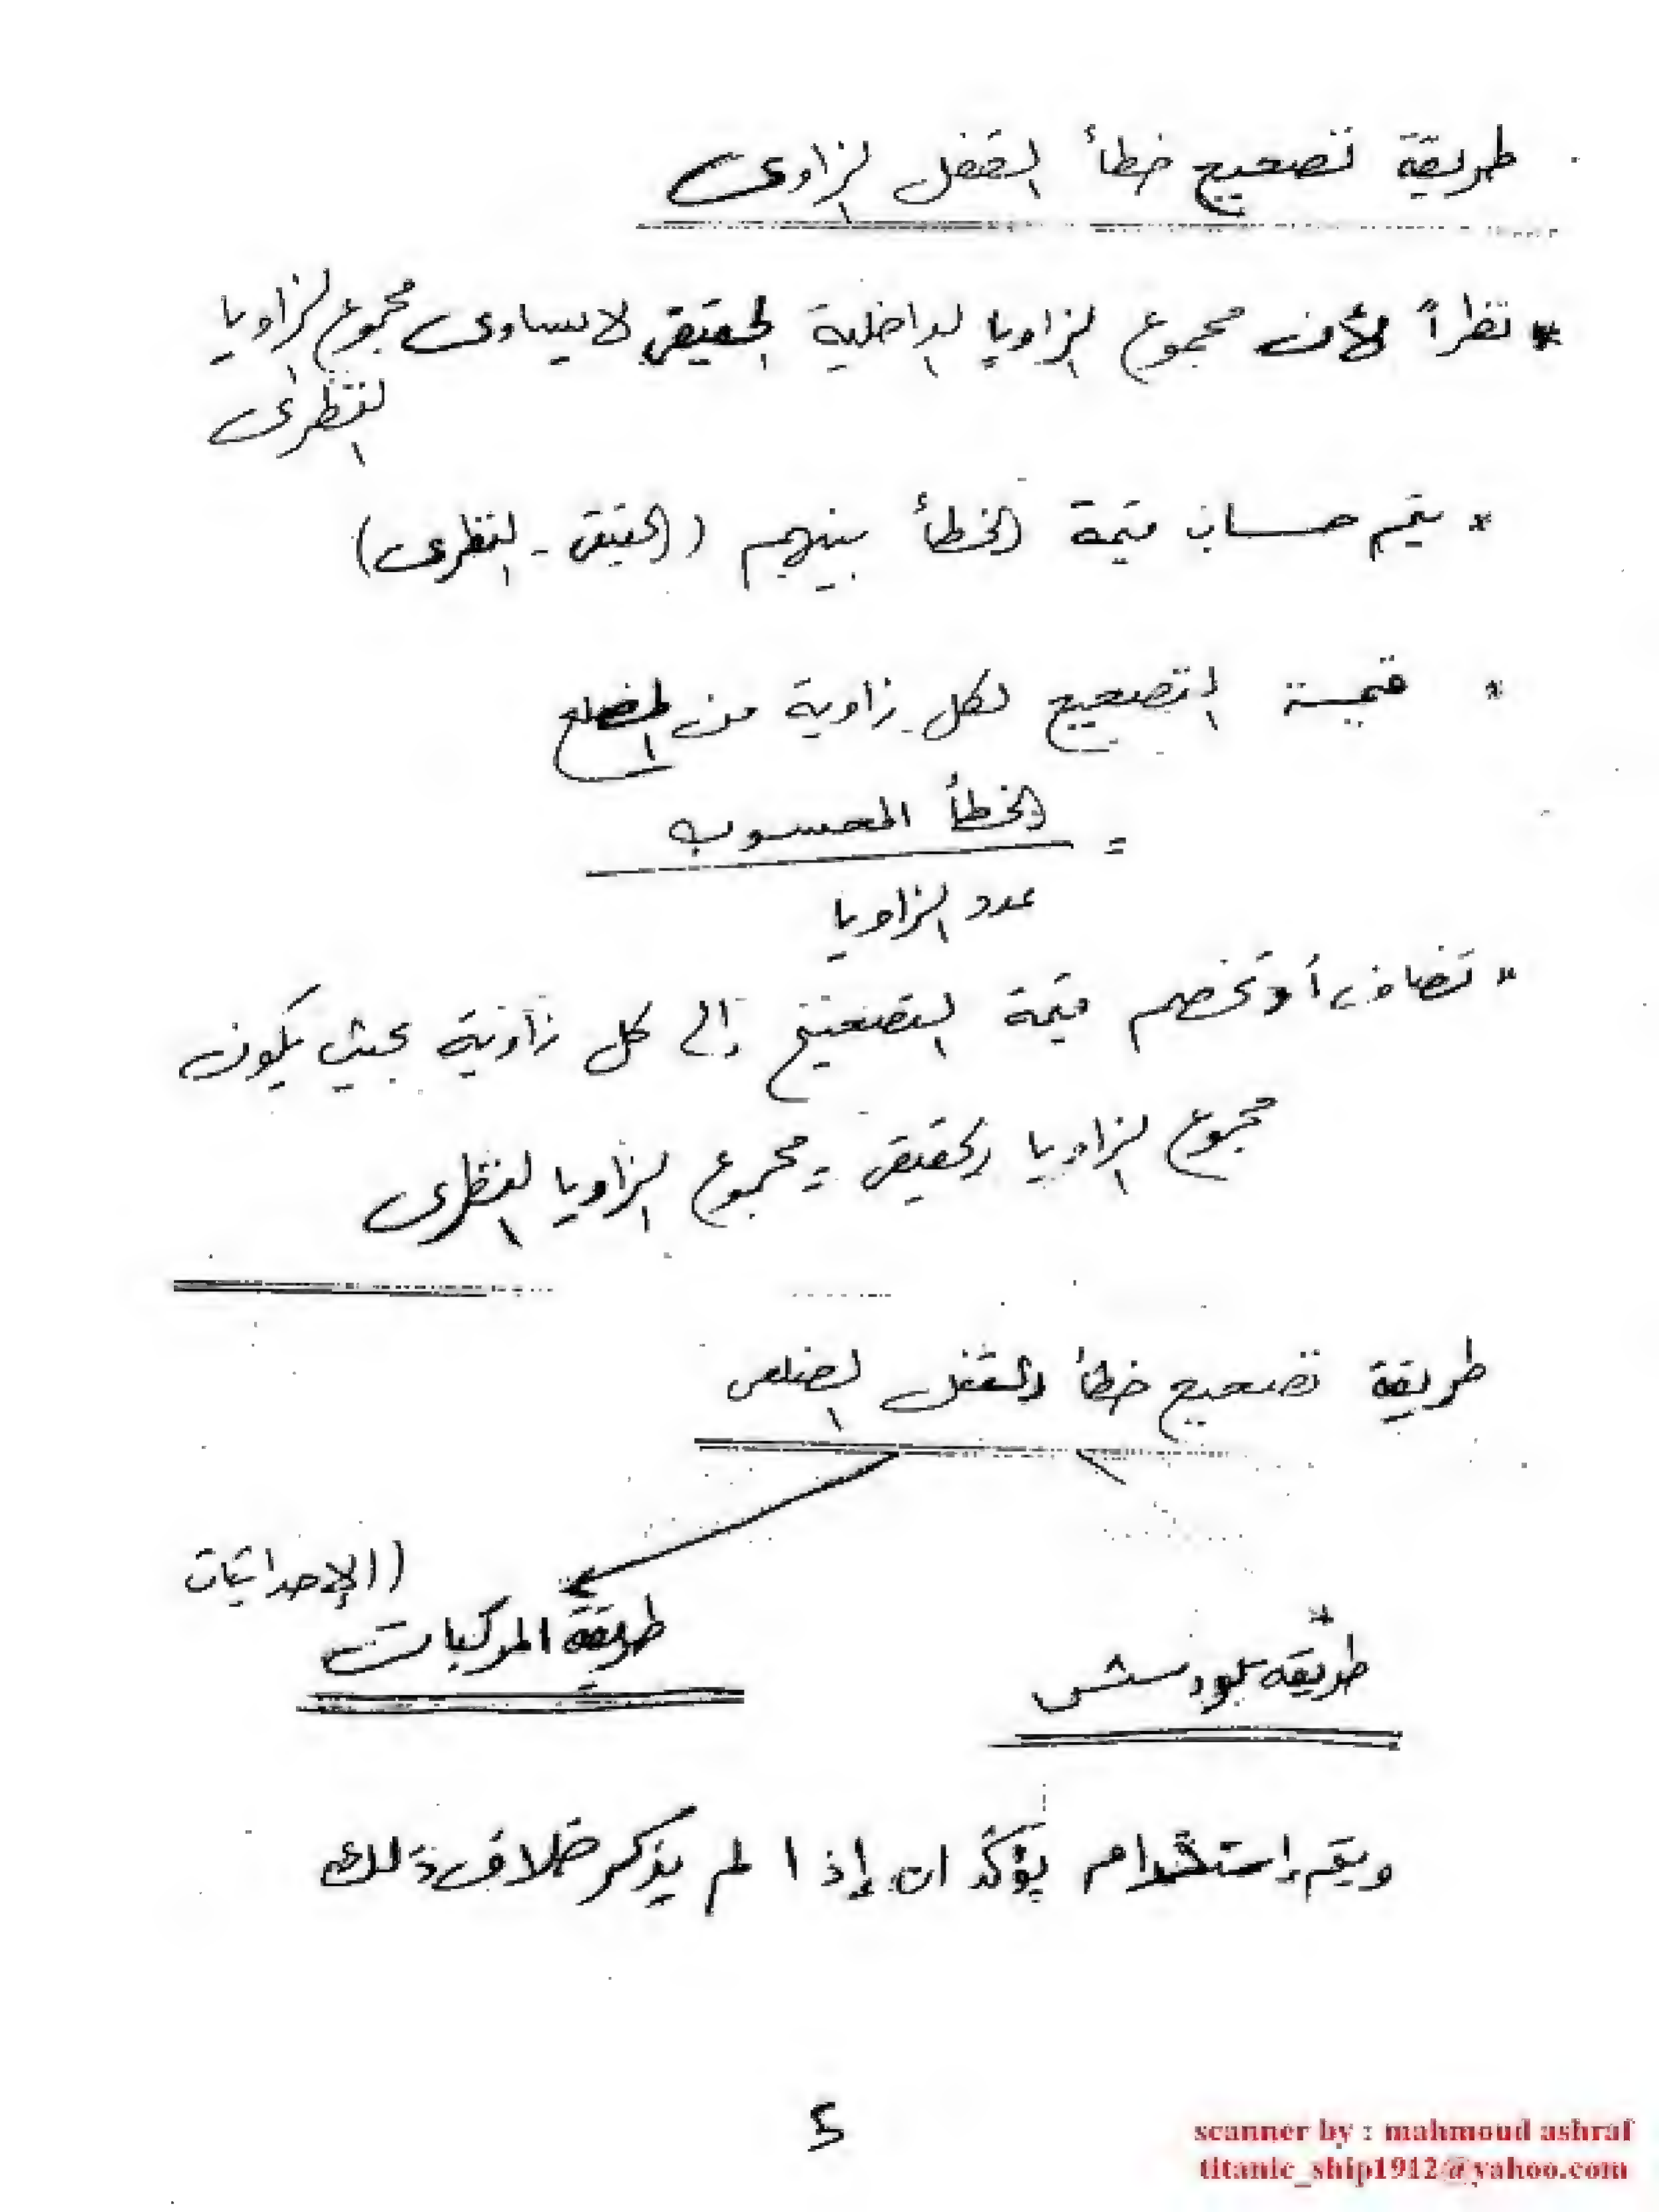 طريقة تصحيح خطأ القفل الزاوى
* نظراً لأن مجموع الزوايا الداخلية الحقيقى لا يساوى مجموع الزوايا
النظرى
* يتم حساب قيمة الخطأ بينهم (الحقيقى - النظرى)
* قيمة التصحيح لكل زاوية من المضلع
= الخطأ المحسوب
عدد الزاويا
* تضاف أو تخصم قيمة التصحيح إلى كل زاوية بحيث يكون
مجموع الزاويا الحقيقى = مجموع الزاويا النظرى
طريقة تصحيح خطأ القفل الضلعى
(الإحداثيات
طريقة المركبات
* طريقة بلودتش
ويتم إستخدام إذا لم يذكر خلاف ذلك
5
scanner by : mahmoud ashraf
titanic_ship1912@yahoo.com